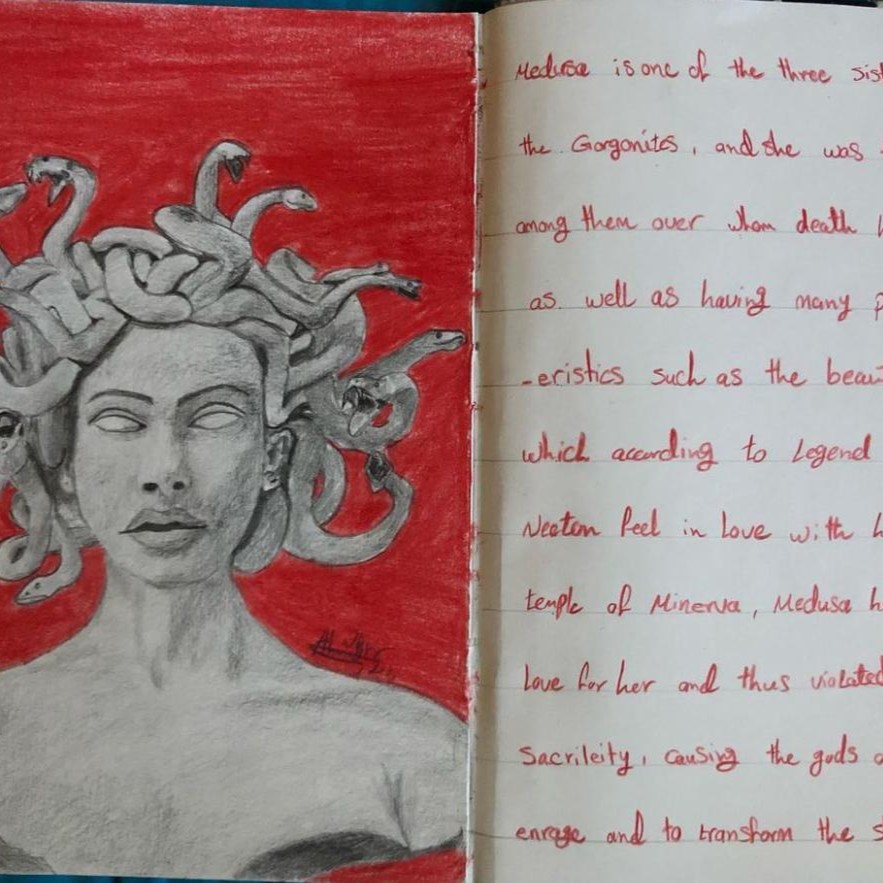 Medusa is one of the three sist
the Gorgonites, and she was
among them over whom death
as well as having many p
-eristics such as the beaut
which according to Legend
Neoton feel in love with h
temple of Minerva, Medusa h
love for her and thus violated
Sacrileity, causing the gods
enrage and to transform the s